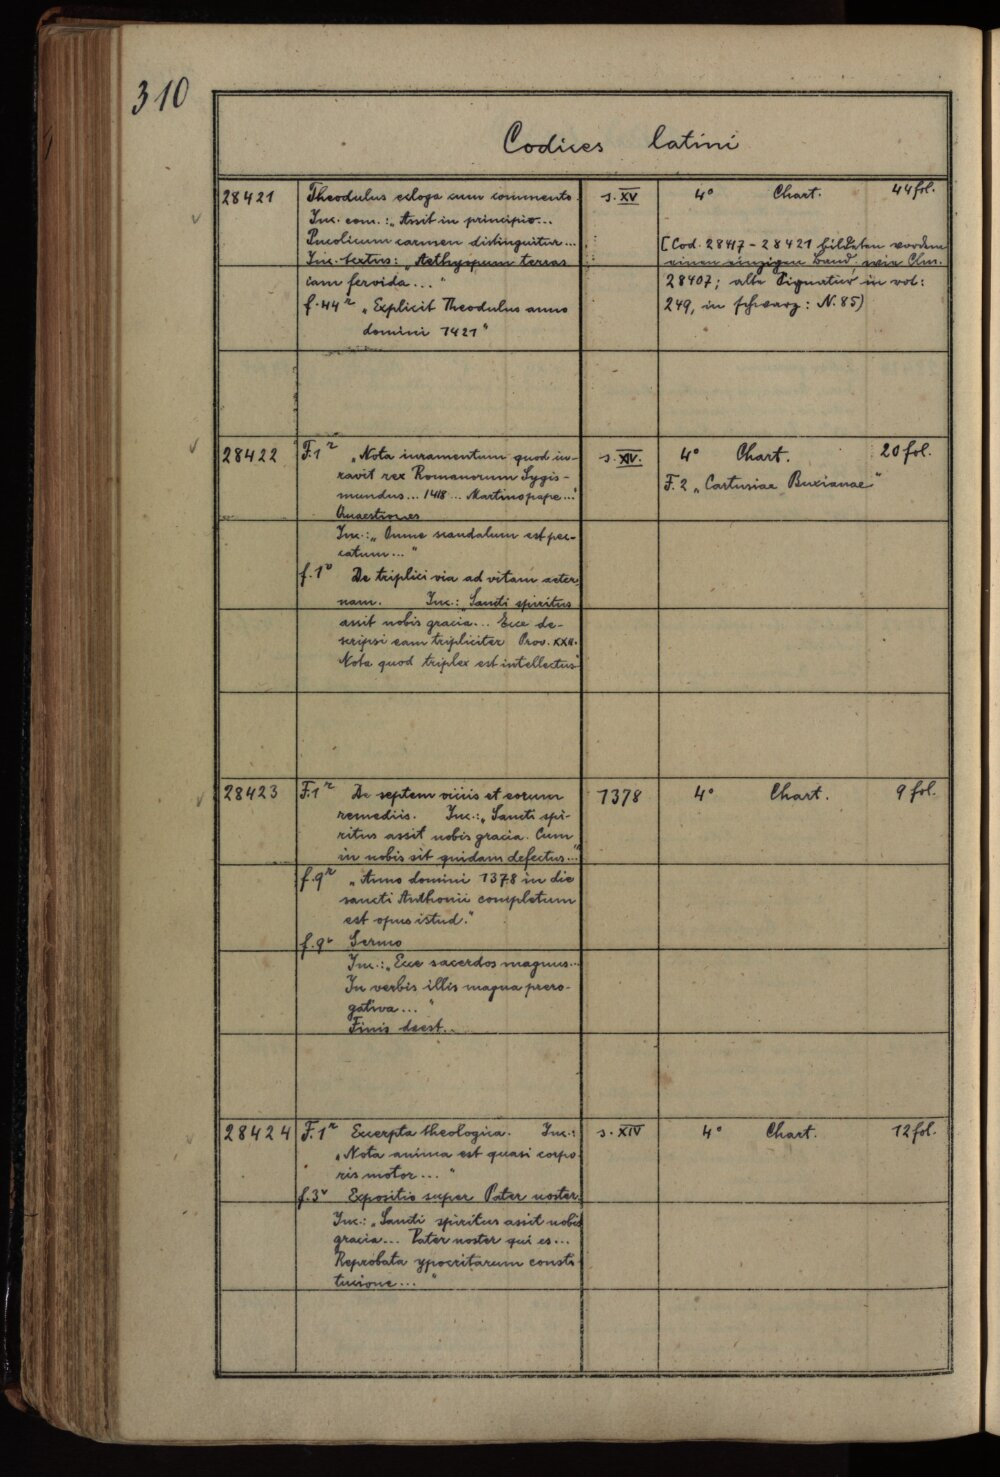 310
Codices latini
28421 Theodulus ecloga cum commento. s. XV 4° Chart. 44 fol.
Inc. com.: „Assit in principio...
Pucolicum carmen distinguitur... [Cod. 28417 - 28421 bildeten vordem
Inc. textus: „Aethyopum terras einen einzigen Band, wie Clm.
iam fervida..." 28407; alte Signatur in rot:
f. 44r „Explicit Theodulus anno 249, in schwarz: N. 85)
domini 1421"
28422 F. 1r „Nota iuramentum quod iu- s. XIV. 4° Chart. 20 fol.
ravit rex Romanorum Sygis- F. 2 „Cartusiae Buxianae"
mundus... 1418... Martino pape..."
Quaestiones
Inc.: „Omne scandalum est pec-
catum..."
f. 1v De triplici via ad vitam aeter-
nam. Inc.: „Sancti spiritus
assit nobis gracia... Ecce de-
scripsi eam tripliciter Prov. XXII.
Nota quod triplex est intellectus"
28423 F. 1r De septem viciis et eorum 1378 4° Chart. 9 fol.
remediis. Inc.: „Sancti spi-
ritus assit nobis gracia. Cum
in nobis sit quidam defectus..."
f. 9r „Anno domini 1378 in die
sancti Anthonii completum
est opus istud."
f. 9v Sermo
Inc.: „Ecce sacerdos magnus...
In verbis illis magna prero-
gativa..."
Finis deest.
28424 F. 1r Excerpta theologica. Inc.: s. XIV 4° Chart. 12 fol.
„Nota anima est quasi corpo
ris motor..."
f. 3v Expositio super Pater noster.
Inc.: „Sancti spiritus assit nobis
gracia... Pater noster qui es...
Reprobata ypocritarum consti-
tucione..."